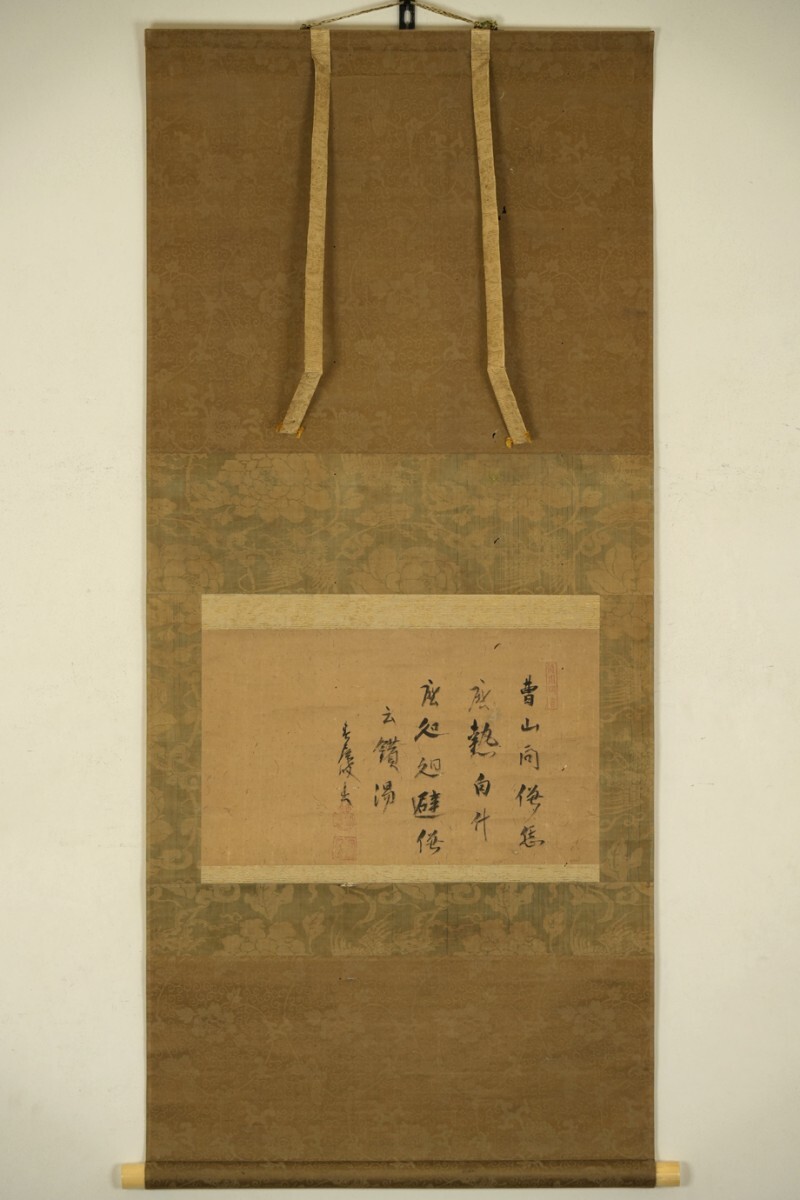 曹山問僧恁
麽熱向什
麽処廻避僧
云鑊湯